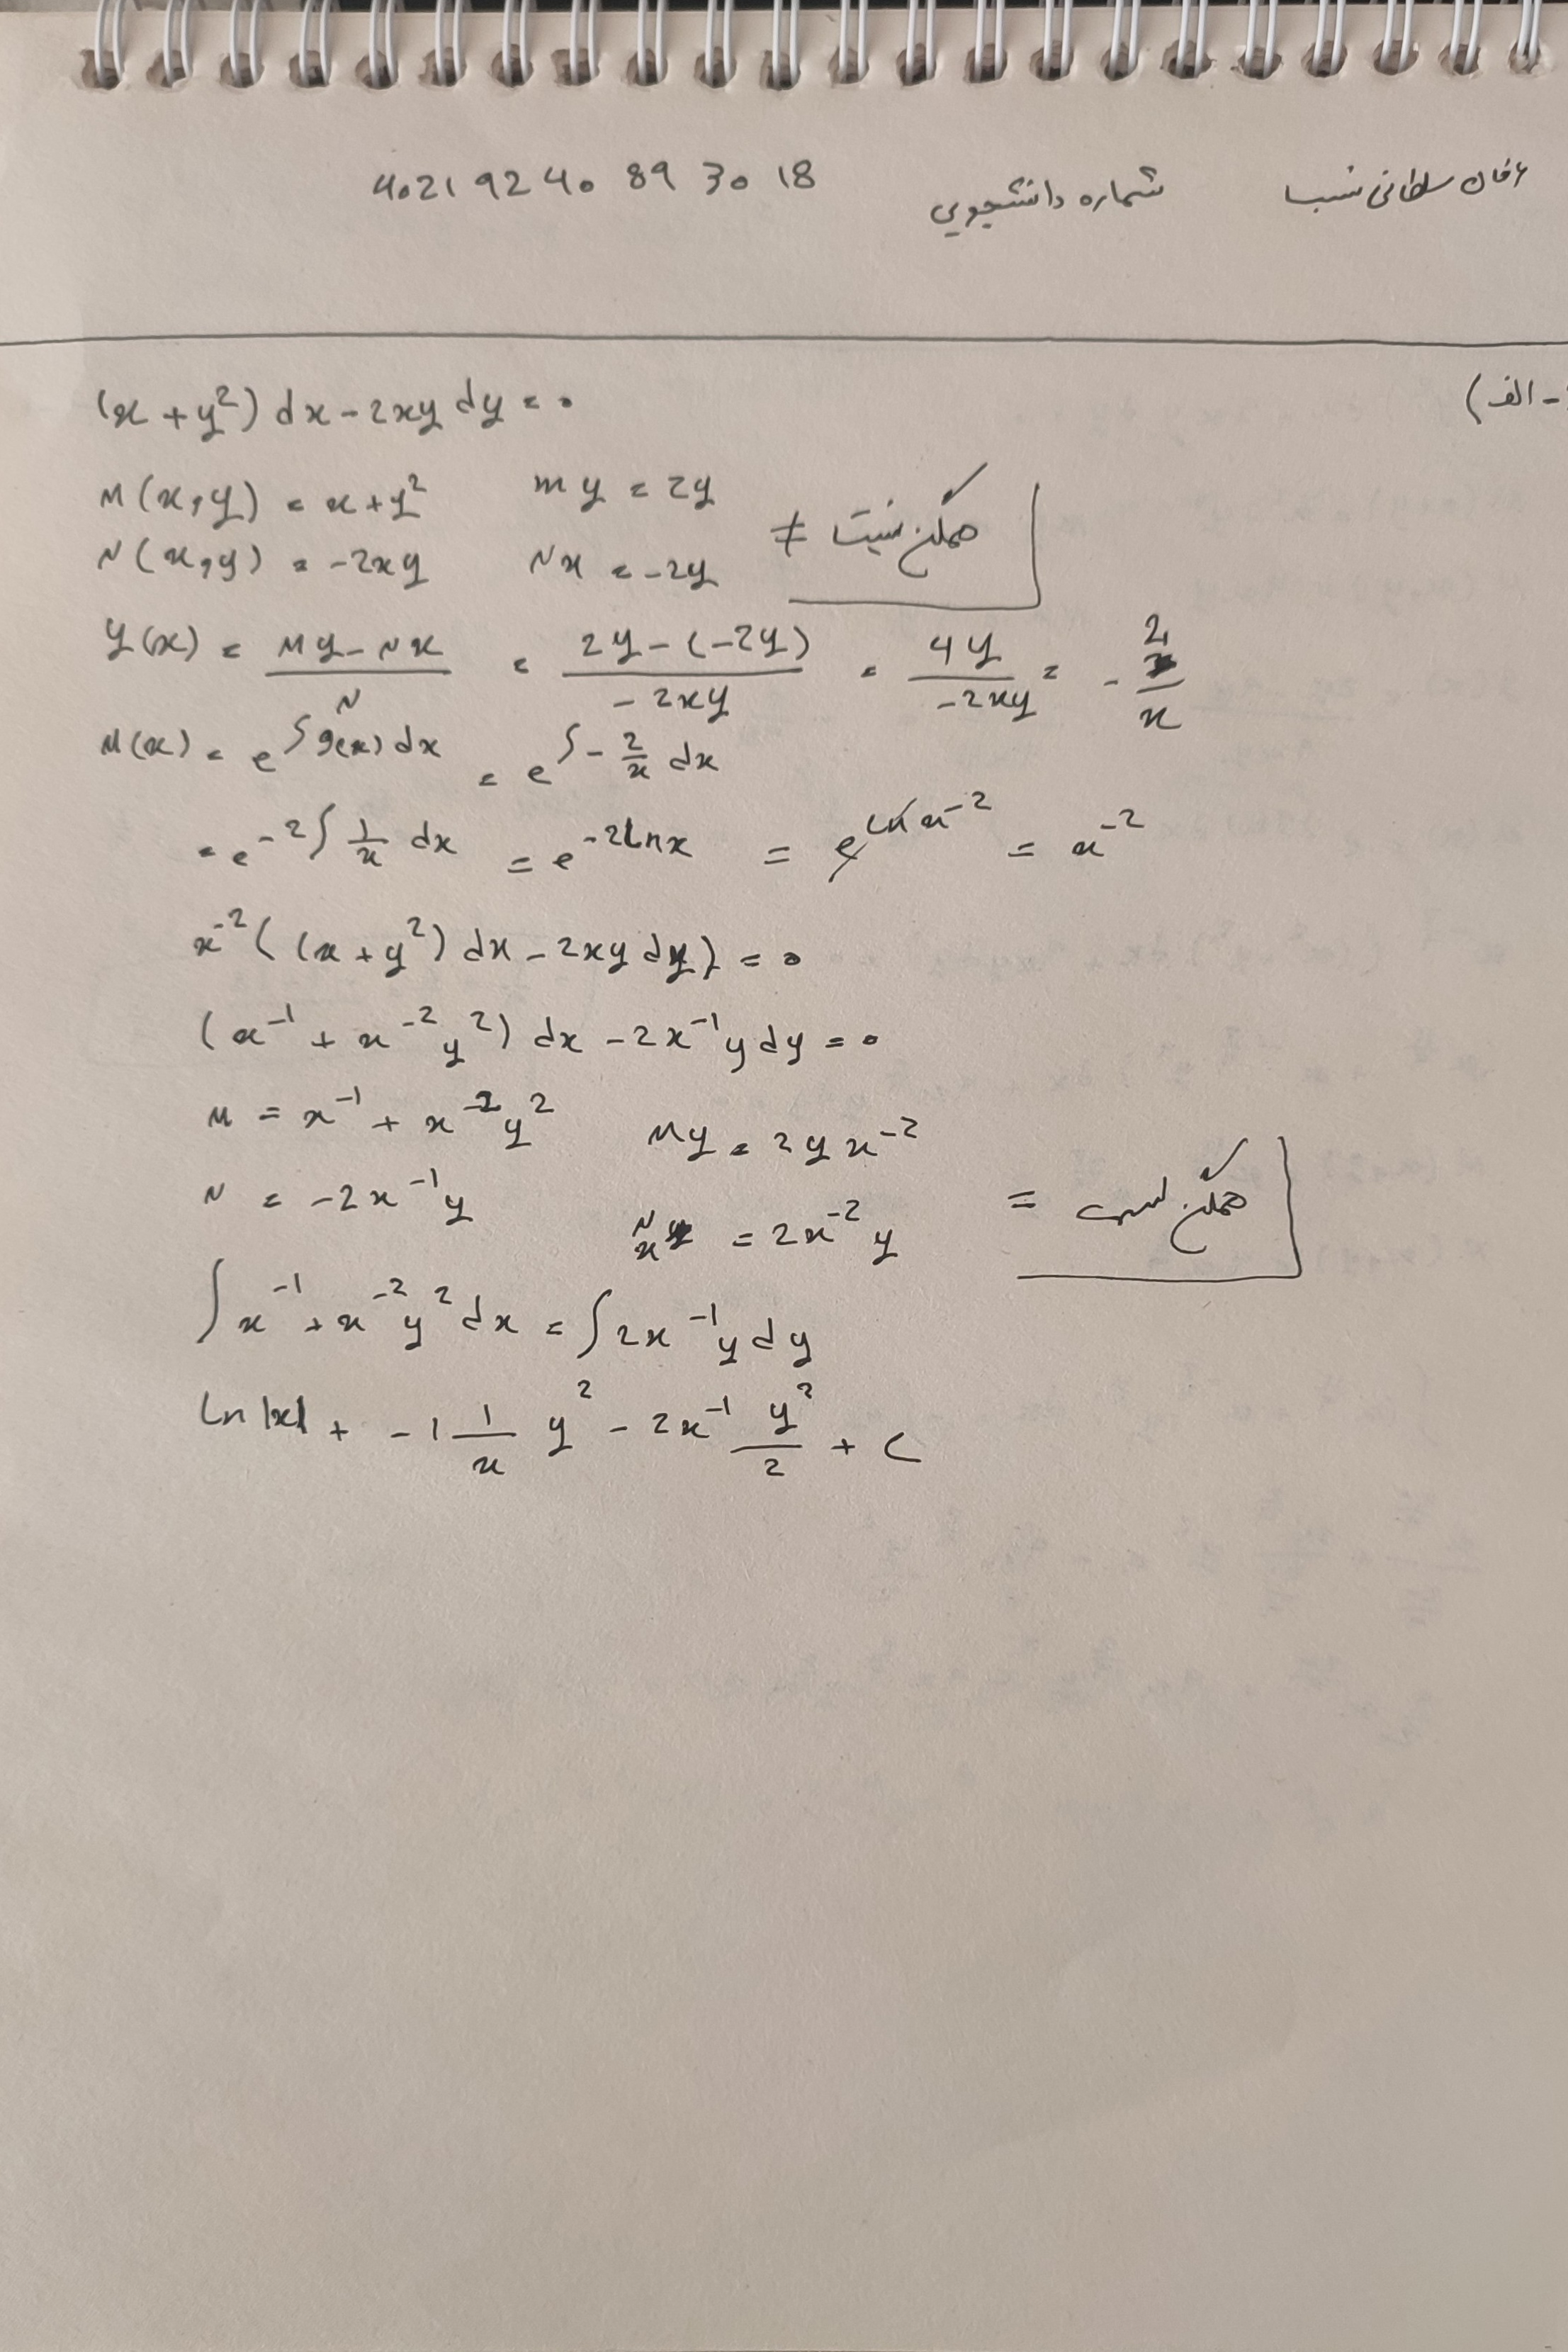 عرفان سلطانی نسب شماره دانشجویی 4021924089 3018
الف)
(x + y²) dx - 2xy dy = 0
M(x,y) = x + y² my = 2y
N(x,y) = -2xy Nx = -2y ≠ ممکن نیست
g(x) = My - Nx / N = 2y - (-2y) / -2xy = 4y / -2xy = - 2/x
M(x) = e^∫g(x) dx = e^∫ - 2/x dx
= e^-2∫ 1/x dx = e^-2Lnx = e^Ln x^-2 = x^-2
x^-2 ((x + y²) dx - 2xy dy) = 0
(x^-1 + x^-2 y²) dx - 2x^-1 y dy = 0
M = x^-1 + x^-2 y² My = 2y x^-2
N = -2x^-1 y Nx = 2x^-2 y = ممکن است
∫ x^-1 + x^-2 y² dx = ∫ 2x^-1 y dy
Ln |x| + -1 1/x y² - 2x^-1 y²/2 + C